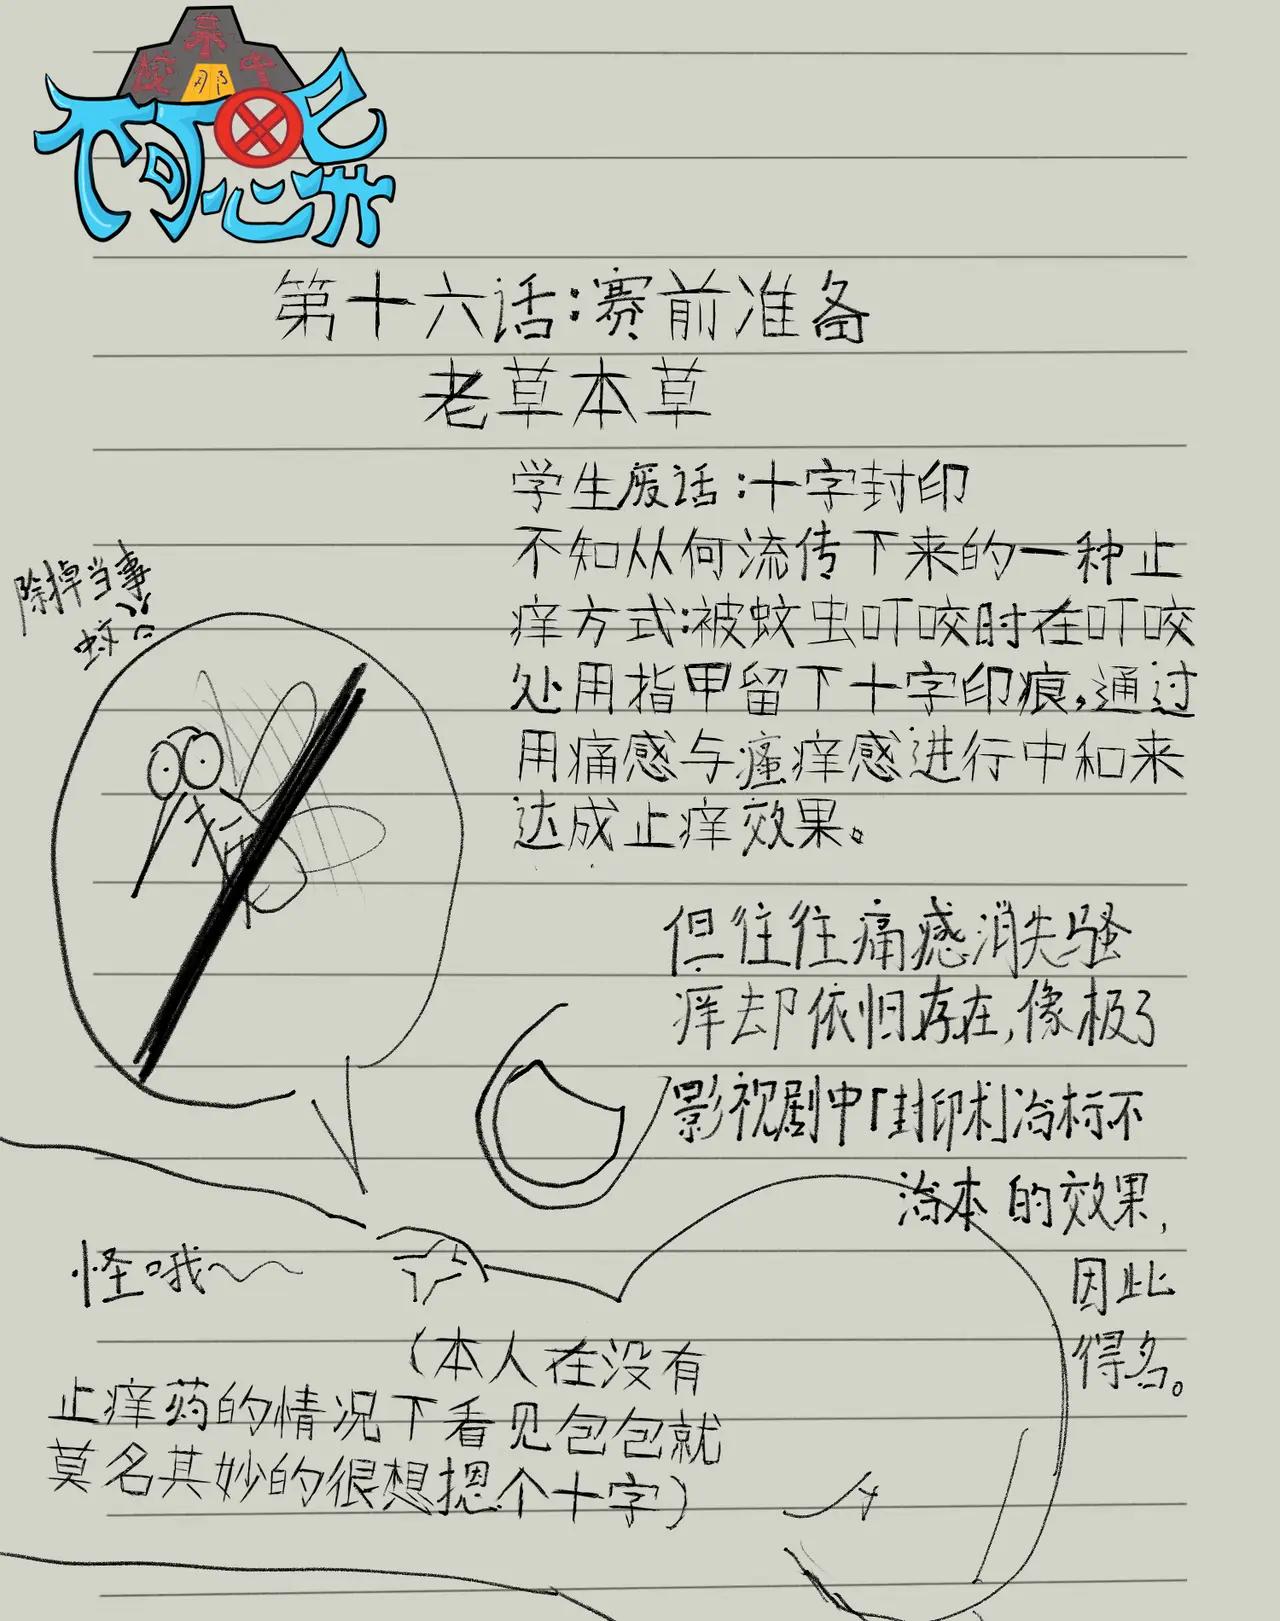 某校
那
中
不可忌讳
第十六话:赛前准备
老草本草
学生废话:十字封印
不知从何流传下来的一种止
痒方式:被蚊虫叮咬时在叮咬
处用指甲留下十字印痕,通过
用痛感与瘙痒感进行中和来
达成止痒效果。
除掉当事
蚊
但往往痛感消失骚
痒却依旧存在,像极了
影视剧中「封印术」治标不
治本的效果,
因此
得名。
怪哦~~
(本人在没有
止痒药的情况下看见包包就
莫名其妙的很想摁个十字)